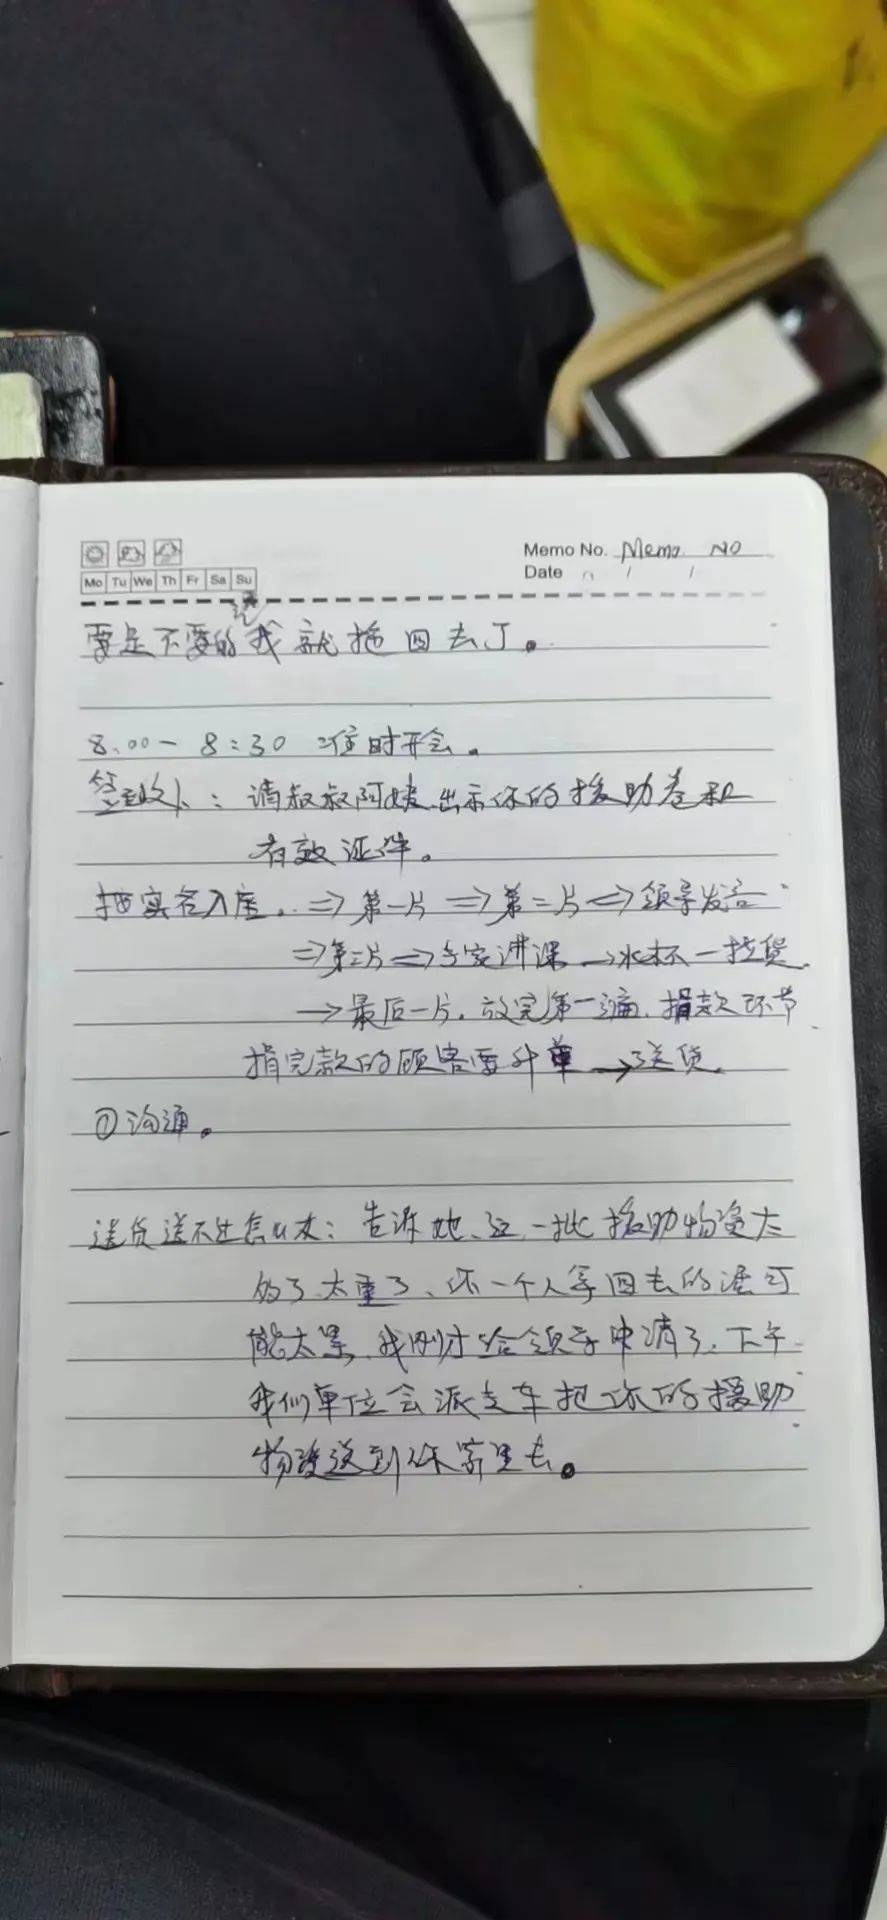 Memo No. Memo NO
Mo Tu We Th Fr Sa Su
Date / /
要是不要的我就拖回去了。
8:00一8:30 准时开会。
签到收入：请叔叔阿姨出示你的援助卷和
有效证件。
实名入座。⇒第一片⇒第二片⇒领导发言
⇒第三片⇒专家讲课→水杯一拉货
→最后一片，放完第一遍，捐款环节
捐完款的顾客要升单→送货
①沟通。
送货送不过怎么办：告诉她、这一批援助物资太
多了太重了、你一个人拿回去的话可
能太累，我刚才给领导申请了，下午
我们单位会派专车把你的援助
物资送到你家里去。